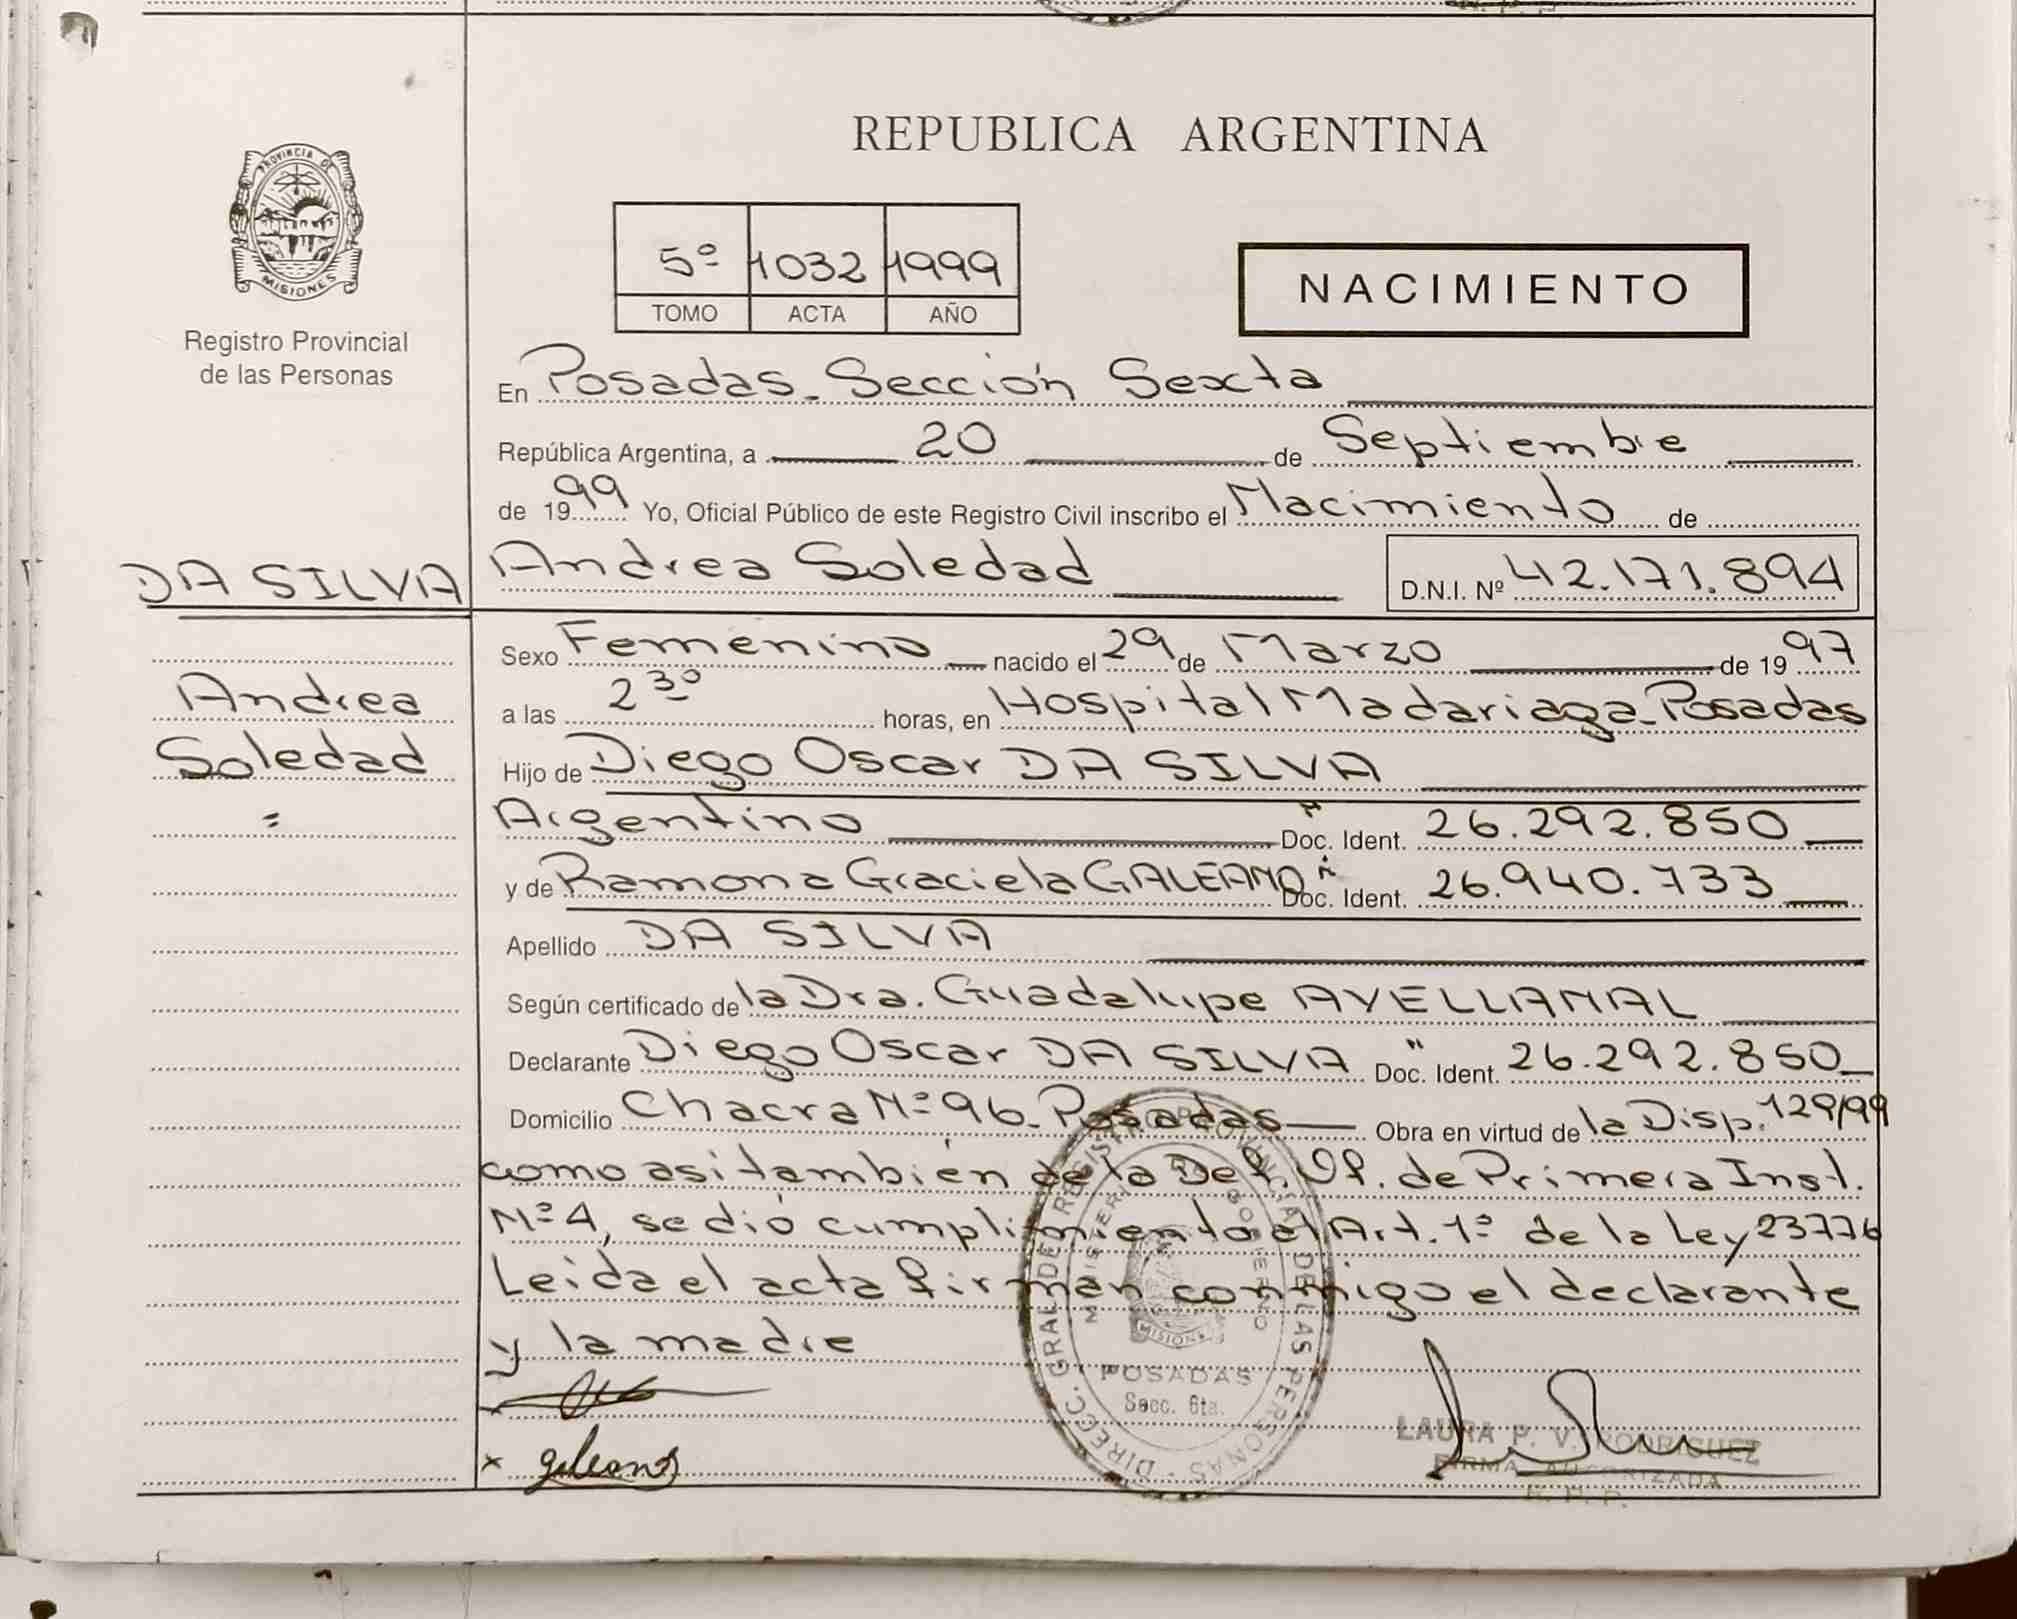 REPUBLICA ARGENTINA
PROVINCIA DE
MISIONES
Registro Provincial
de las Personas
5º 1032 1999
TOMO ACTA AÑO
NACIMIENTO
En Posadas - Sección Sexta
República Argentina, a 20 de Septiembre
de 1999 Yo, Oficial Público de este Registro Civil inscribo el Nacimiento de
DA SILVA
Andrea
Soledad
=
Andrea Soledad D.N.I. Nº 42.171.894
Sexo Femenino nacido el 29 de Marzo de 1997
a las 2 30 horas, en Hospital Madariaga - Posadas
Hijo de Diego Oscar DA SILVA
Argentino Doc. Ident. 26.292.850
y de Ramona Graciela GALEANO Doc. Ident. 26.940.733
Apellido DA SILVA
Según certificado de la Dra. Guadalupe AVELLANAL
Declarante Diego Oscar DA SILVA " Doc. Ident. 26.292.850
Domicilio Chacra Nº 96 - Posadas Obra en virtud de la Disp. 129/99
como asi también de la Def. Of. de Primera Inst.
Nº 4, se dió cumplimiento al Art. 1º de la Ley 23776
Leida el acta firman conmigo el declarante
y la madre
x galeano
DIRECC. GRAL. DE REGISTRO PROVINCIAL DE LAS PERSONAS
MINISTERIO DE GOBIERNO
MISIONES
POSADAS
Secc. 6ta.
LAURA P. V. RODRIGUEZ
FIRMA AUTORIZADA
R. P. P.